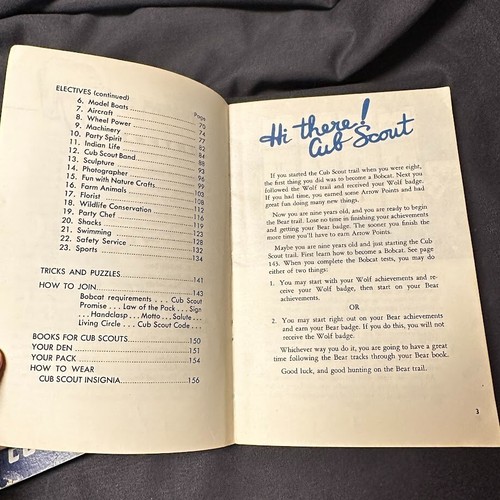 ELECTIVES (continued)
Page
6. Model Boats 70
7. Aircraft 74
8. Wheel Power 77
9. Machinery 82
10. Party Spirit 84
11. Indian Life 88
12. Cub Scout Band 93
13. Sculpture 96
14. Photographer 99
15. Fun with Nature Crafts 103
16. Farm Animals 108
17. Florist 112
18. Wildlife Conservation 116
19. Party Chef 119
20. Shocks 123
21. Swimming 128
22. Safety Service 132
23. Sports 134
TRICKS AND PUZZLES 141
HOW TO JOIN 143
Bobcat requirements . . . Cub Scout
Promise . . . Law of the Pack . . . Sign
. . . Handclasp . . . Motto . . . Salute . . .
Living Circle . . . Cub Scout Code . . .
BOOKS FOR CUB SCOUTS 150
YOUR DEN 151
YOUR PACK 154
HOW TO WEAR
CUB SCOUT INSIGNIA 156
Hi there!
Cub Scout
If you started the Cub Scout trail when you were eight,
the first thing you did was to become a Bobcat. Next you
followed the Wolf trail and received your Wolf badge.
If you had time, you earned some Arrow Points and had
great fun doing many new things.
Now you are nine years old, and you are ready to begin
the Bear trail. Lose no time in finishing your achievements
and getting your Bear badge. The sooner you finish the
more time you'll have to earn Arrow Points.
Maybe you are nine years old and just starting the Cub
Scout trail. First learn how to become a Bobcat. See page
143. When you complete the Bobcat tests, you may do
either of two things:
1. You may start with your Wolf achievements and re-
ceive your Wolf badge, then start on your Bear
achievements.
OR
2. You may start right out on your Bear achievements
and earn your Bear badge. If you do this, you will not
receive the Wolf badge.
Whichever way you do it, you are going to have a great
time following the Bear tracks through your Bear book.
Good luck, and good hunting on the Bear trail.
3